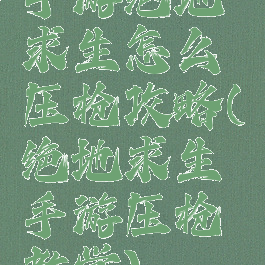 手游绝地
求生怎么
压枪攻略(
绝地求生
手游压枪
教学)